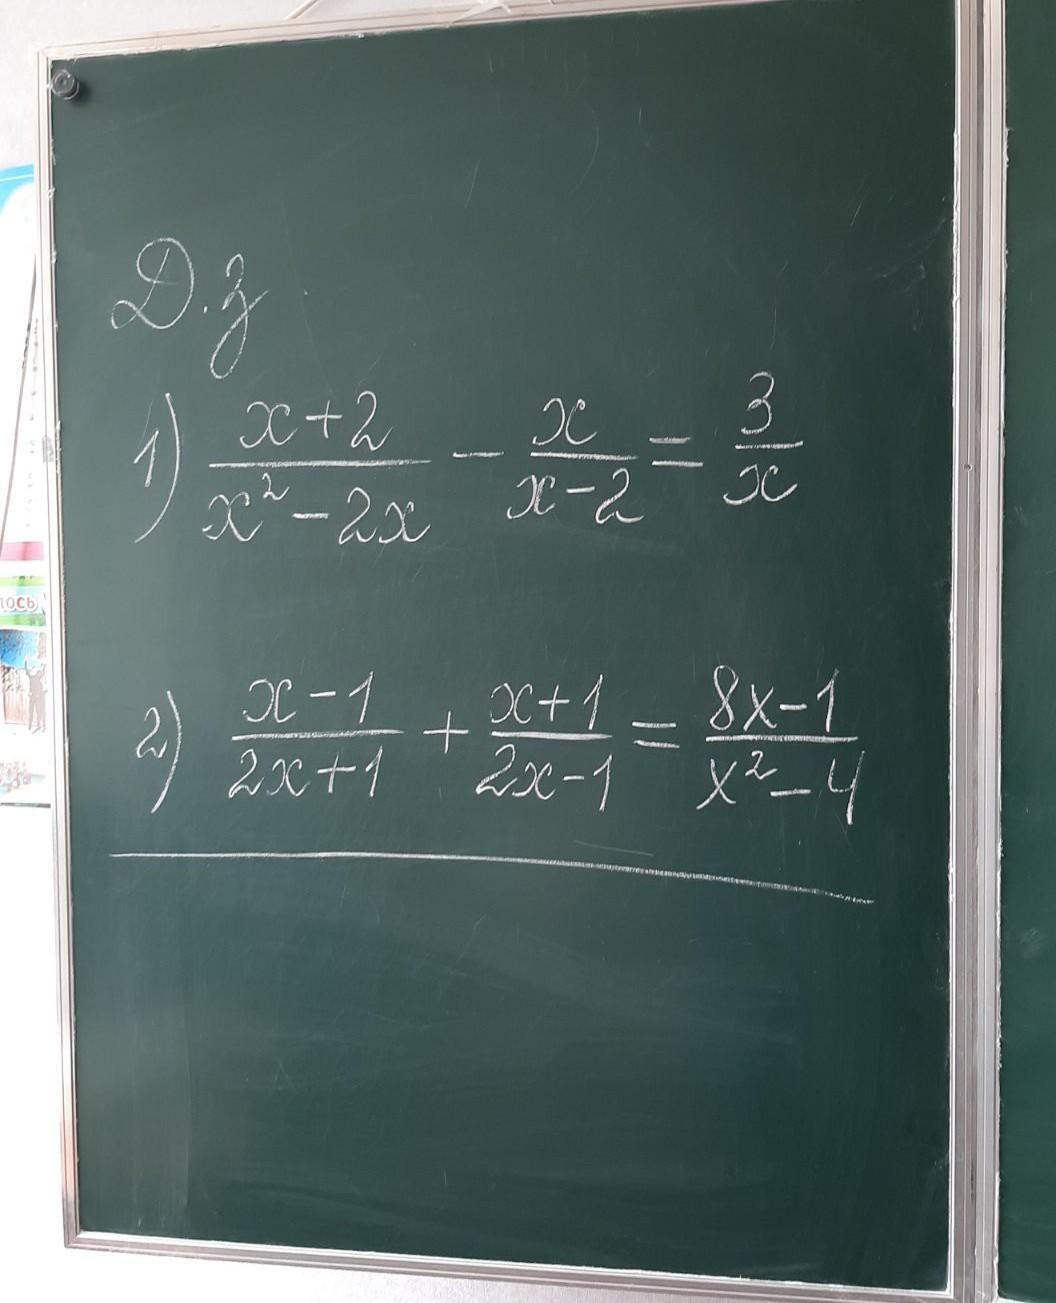 Д.з
1) \frac{x+2}{x^2-2x} - \frac{x}{x-2} = \frac{3}{x}
2) \frac{x-1}{2x+1} + \frac{x+1}{2x-1} = \frac{8x-1}{x^2-4}